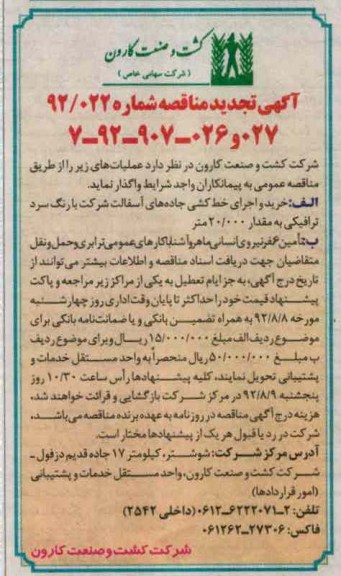 کشت و صنعت کارون
( شرکت سهامی خاص )
آگهی تجدید مناقصه شماره ۹۲/۰۲۲
۰۲۷و۰۲۶ـ۹۰۷ـ۹۲ـ۷
شرکت کشت و صنعت کارون در نظر دارد عملیات‌های زیر را از طریق
مناقصه عمومی به پیمانکاران واجد شرایط واگذار نماید.
الـف: خرید و اجرای خط کشی جاده‌های آسفالت شرکت با رنگ سرد
ترافیکی به مقدار ۲۰/۰۰۰ متر
ب: تأمین ۶ نفر نیروی انسانی ماهر و آشنا با کارهای عمومی ترابری و حمل و نقل
متقاضیان جهت دریافت اسناد مناقصه و اطلاعات بیشتر می‌توانند از
تاریخ درج آگهی، به جز ایام تعطیل به یکی از مراکز زیر مراجعه و پاکت
پیشـنهاد قیمت خود را حداکثر تا پایان وقت اداری روز چهارشـنبه
مورخه ۹۲/۸/۸ به همراه تضمیـن بانکی و یا ضمانت‌نامه بانکی برای
موضوع ردیف الف مبلغ ۱۵/۰۰۰/۰۰۰ ریـال و برای موضوع ردیف
ب مبلـغ ۵۰/۰۰۰/۰۰۰ ریال منحصراً به واحد مسـتقل خدمات و
پشتیبانی تحویل نمایند، کلیه پیشـنهادها رأس ساعت ۱۰/۳۰ روز
پنجشنبه ۹۲/۸/۹ در مرکز شـرکت بازگشایی و قرائت خواهند شد،
هزینه درج آگهی مناقصه در روزنامه به عهده برنده مناقصه می‌باشـد،
شرکت در رد یا قبول هر یک از پیشنهادها مختار است.
آدرس مرکز شـرکـت: شوشتر، کیلومتر ۱۷ جاده قدیم دزفول ـ
شـرکت کشت و صنعت کارون، واحد مسـتقل خدمات و پشتیبانی
(امور قراردادها)
تلفن: ۲ـ۶۲۲۲۰۷۱ـ۰۶۱۲ (داخلی ۲۵۴۲)
فاکس: ۲۷۳۰۶ـ۰۶۱۲۶۲
شرکت کشت و صنعت کارون